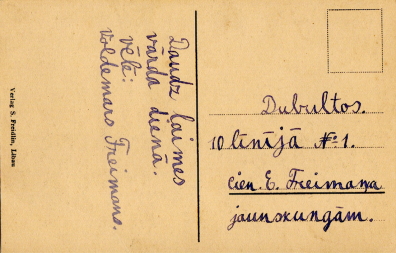 Verlag S. Freidlin, Libau
Daudz laimes
vārda dienā.
vēlē:
Voldemars Freimans.
Dubultos.
10 līnījā № 1.
Cien. E. Freimaņa
jaunskungām.